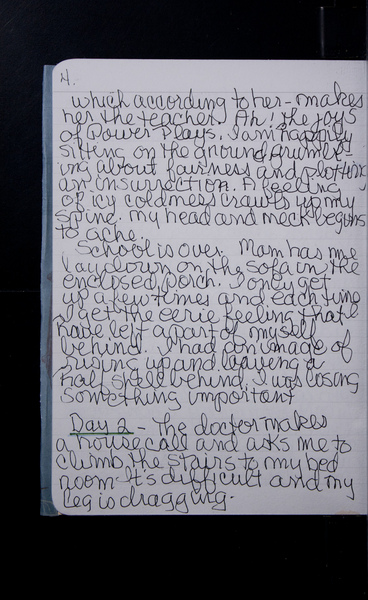 4.
which according to her - makes
her the teacher. Ah! the joys
of Power Plays. I am happily
sitting on the ground grumbl-
ing about fairness and plotting
an insurrection. A feeling
of icy coldness crawls up my
spine. my head and neck begins
to ache.
School is over. Mom has me
lay down on the sofa in the
enclosed porch. I only get
up a few times and each time
I get the eerie feeling that I
have left a part of myself
behind. I had an image of
rising up and leaving a
half shell behind. I was losing
something important
Day 2 - The doctor makes
a house call and asks me to
climb the stairs to my bed
room. It's difficult and my
leg is dragging.